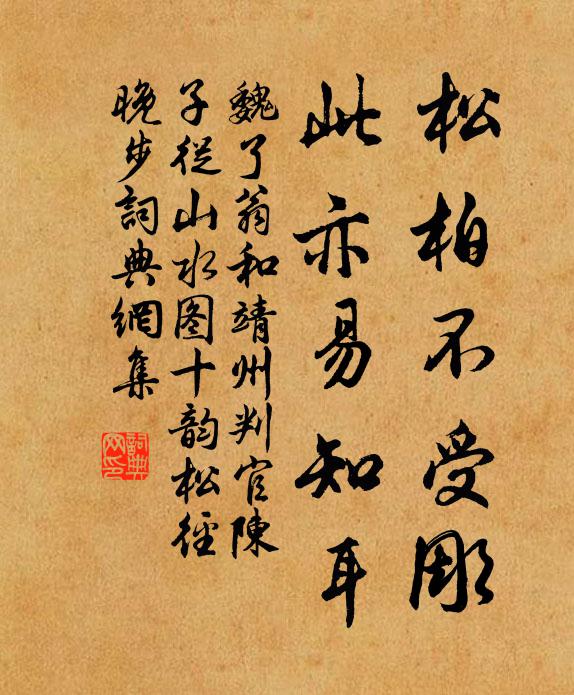 松柏不受彫
此亦易知耳
魏了翁和靖州判官陳
子從山水图十韵松徑
晚步詞典網集
詞典网印